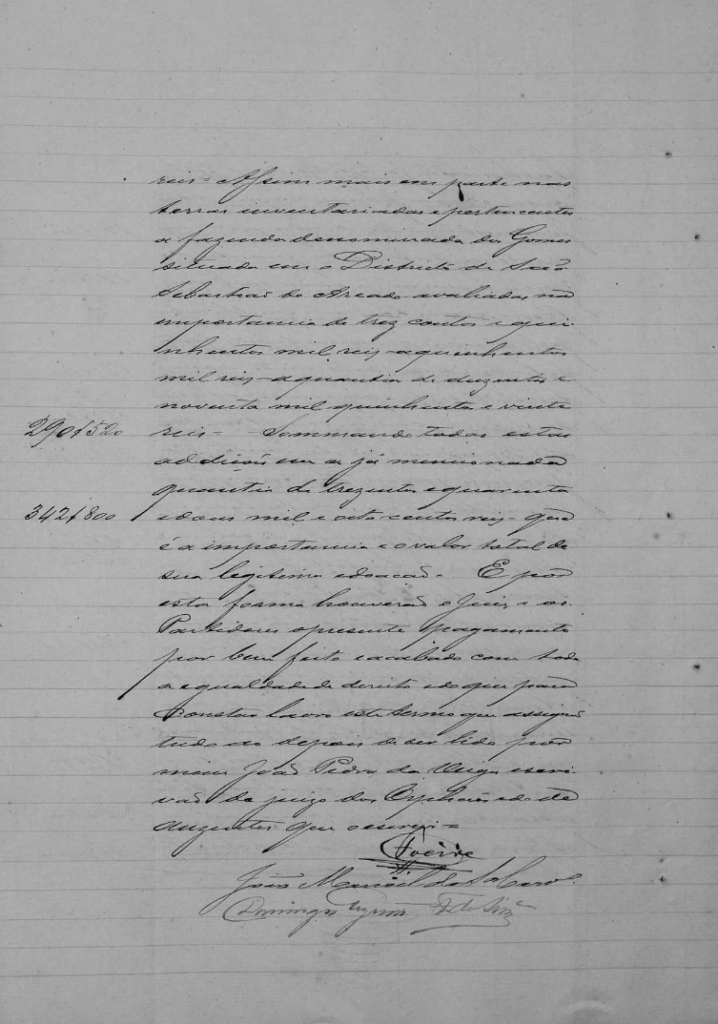 reis = Assim mais em parte nas
terras inventariadas e pertencentes
a fazenda denominada dos Gomes
situada em o Districto de São
Sebastião do Areado avaliadas na
importancia de trez contos e qui
nhentos mil reis a quinhentos
mil reis a quantia de duzentos e
noventa mil quinhentos e vinte
290$520 reis = Sommando todas estas
addiçoẽs em a já mencionada
quantia de trezentos e quarenta
342$800 e dous mil e oito centos reis - que
é a importancia e o valor total de
sua legitima e doacão. E por
esta forma houverão o Juiz e os
Partidores o presente pagamento
por bem feito e acabado com toda
a egualdade de direito e do que para
constar lavro este termo que assig
tudo ao depois de ser lido por
mim João Pedro da Veiga escri
vão do juizo dos Orphaõs e do de
auzentes que o escrevi =
João Manoel de
Domingos